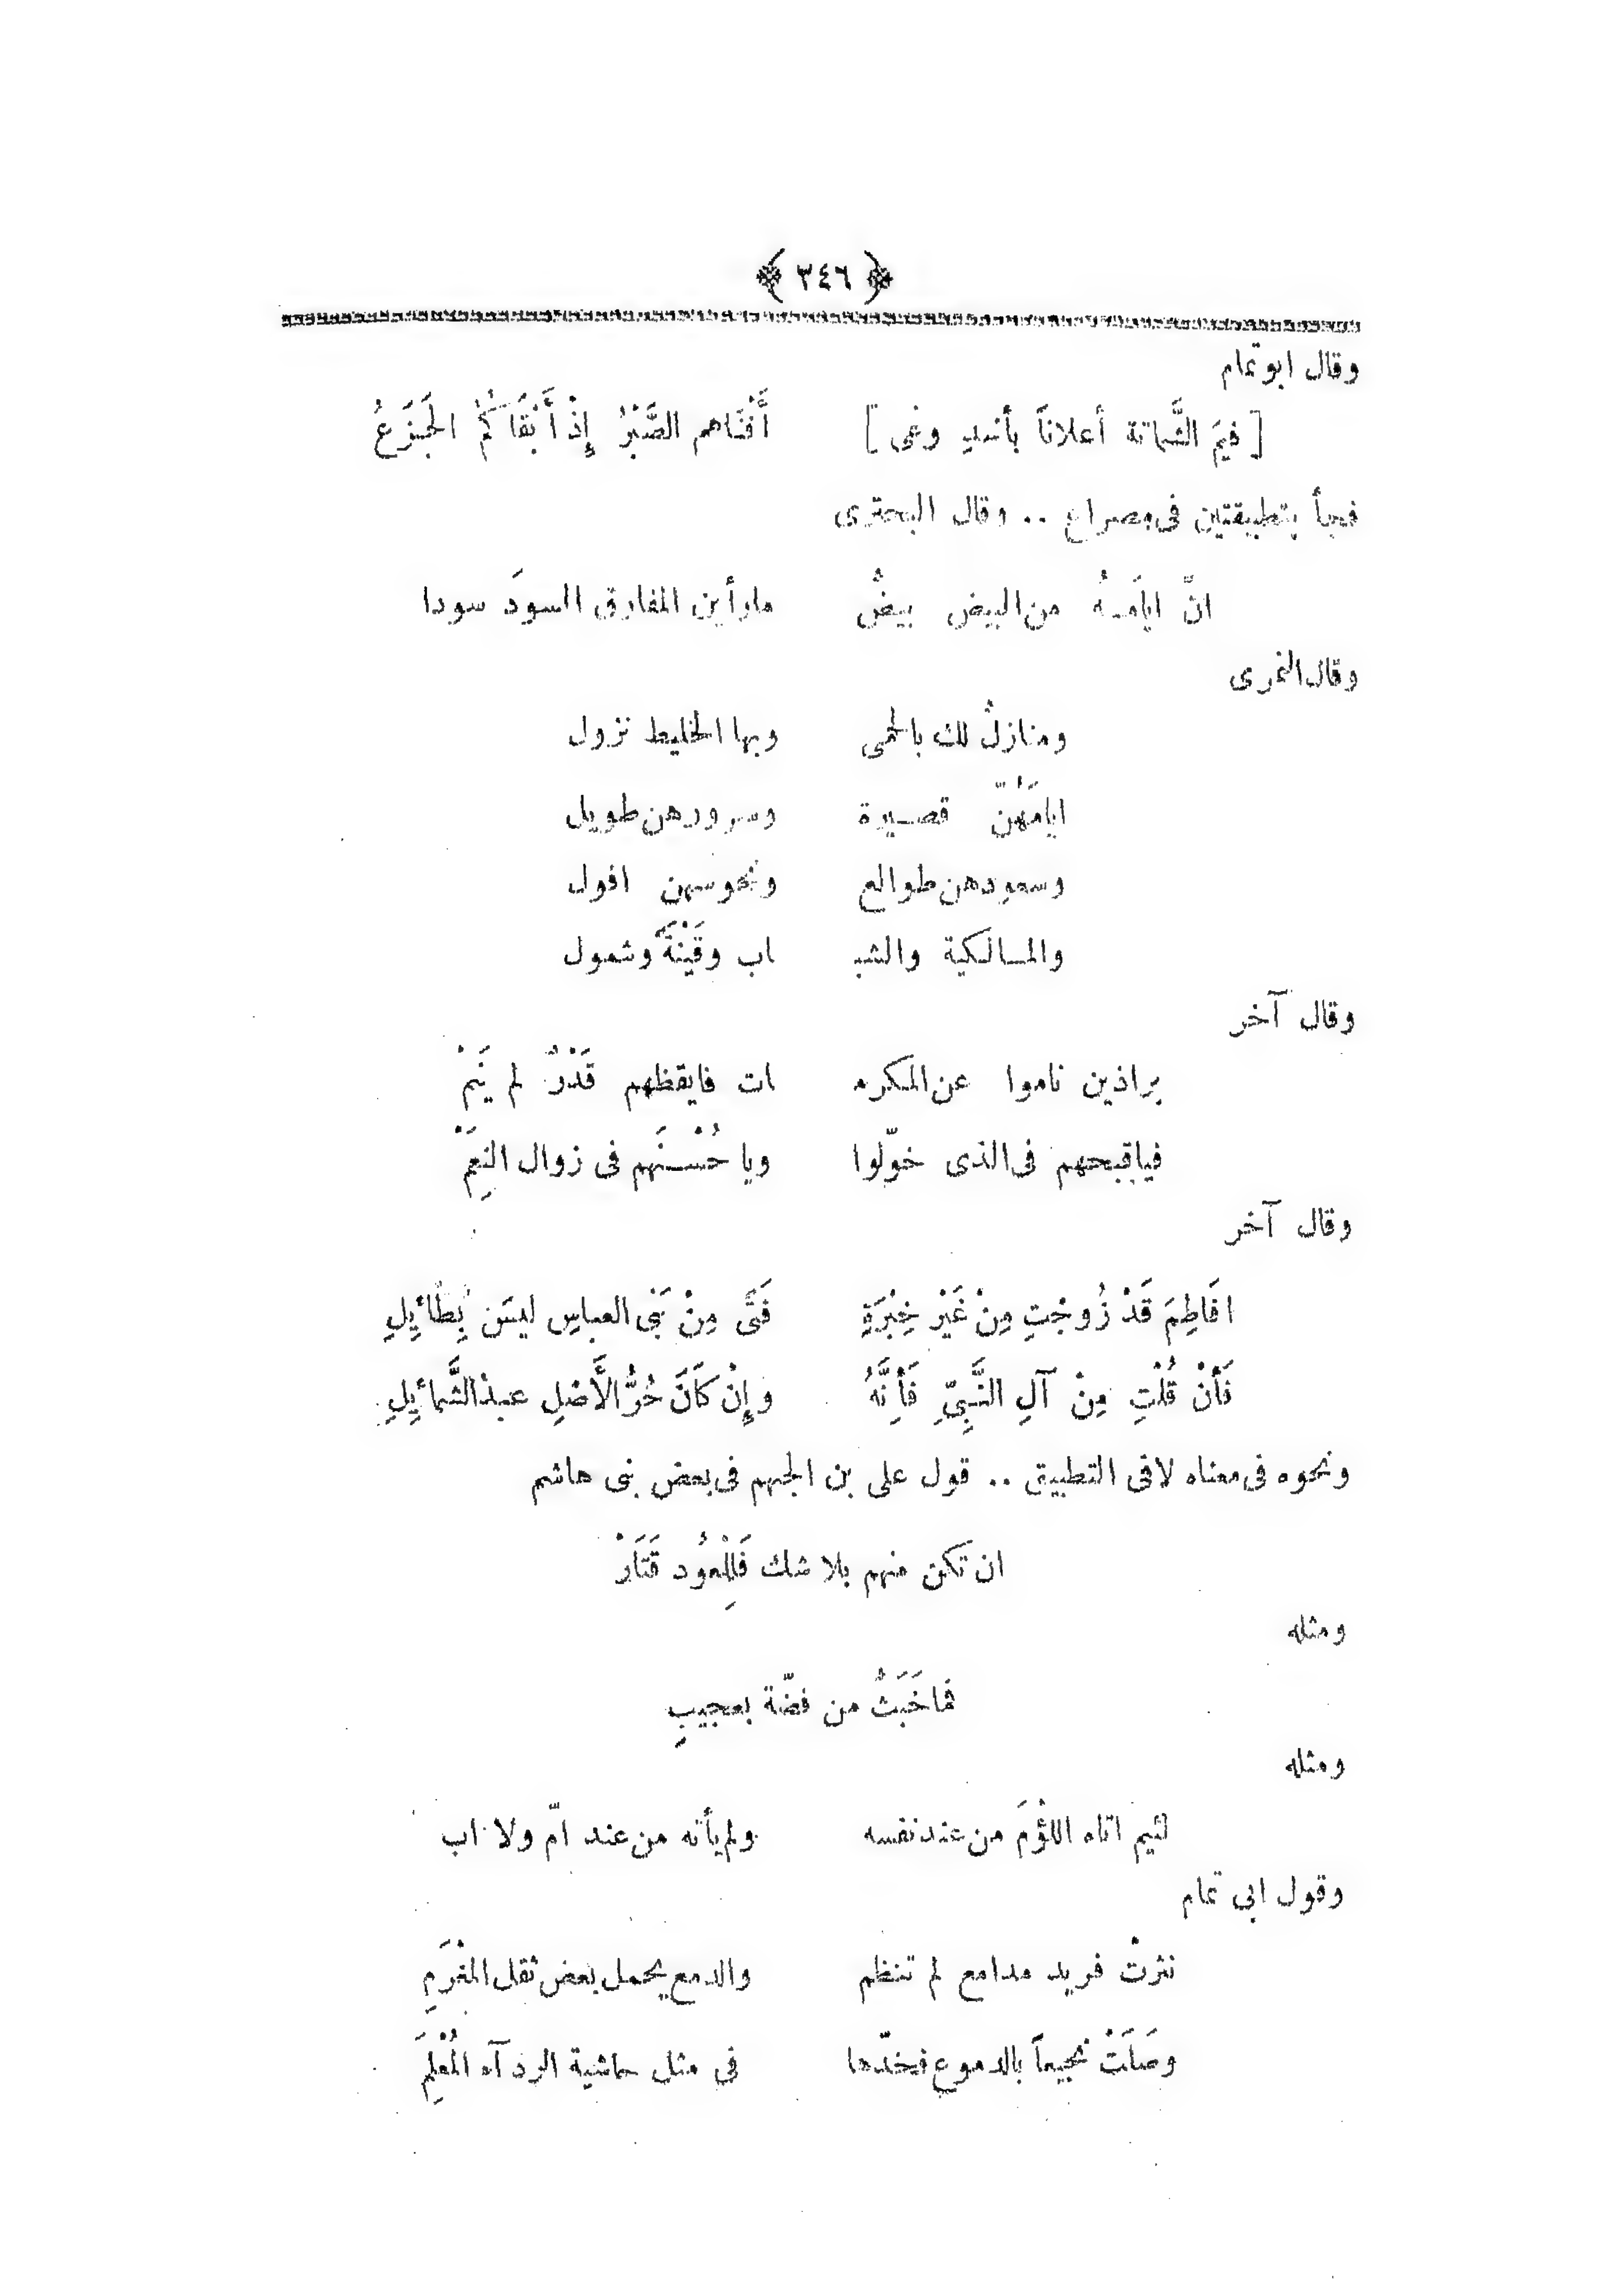 ﴿ ٣٤٦ ﴾
وقال ابو تمام
[ فيمَ الشَّماتة أعلاناً بأسدِ وغى ] أَفْنَاهم الصَّبْرُ إِذْ أَبْقَاكُمُ الجَزَعُ
فجأ بتطبيقتين فى مصراع .. وقال البحترى
انّ ايامَهُ من البيض بيضُ مارأين المفارق السودَ سودا
وقال النمرى
ومنازلُ لك بالحمى وبها الخليط نزول
ايامَهُنّ قصيرة وسرورهن طويل
وسعودهن طوالع ونحوسهن افول
والمالكية والشبـ ـاب وقَيْنَةُ وشمول
وقال آخر
براذين ناموا عن المكرمـ ـات فايقظهم قَدْرُ لم يَنَمْ
فياقبحهم فى الذى خوّلوا ويا حُسْنَهم فى زوال النِعَمْ
وقال آخر
افَاطِمَ قَدْ زُوجْتِ مِنْ غَيْرِ خِبْرَةٍ فَتًى مِنْ بَنِى العباسِ ليسَ بِطَائِلِ
فَأنْ قُلْتِ مِنْ آلِ النَّبِىِّ فَأِنَّهُ وإِنْ كَانَ حُرُّ الأَصْلِ عبدُ الشَّمائِلِ
ونحوه فى معناه لا فى التطبيق .. قول على بن الجهم فى بعض بنى هاشم
ان تكن منهم بلا شك فَلِلْعُود قَتَارْ
ومثله
فَمَا خَبَثُ من فضّة بعجيبِ
ومثله
لئيم اتاه اللؤْمَ من عند نفسه ولم يأته من عند امّ ولا اب
وقول ابى تمام
نثرتْ فريد مدامع لم تنظم والدمع يحمل بعض ثقل المغْرَمِ
وصَلَتْ نجيعاً بالدموع فخدّها فى مثل حاشية الردآء المُعْلِمَ